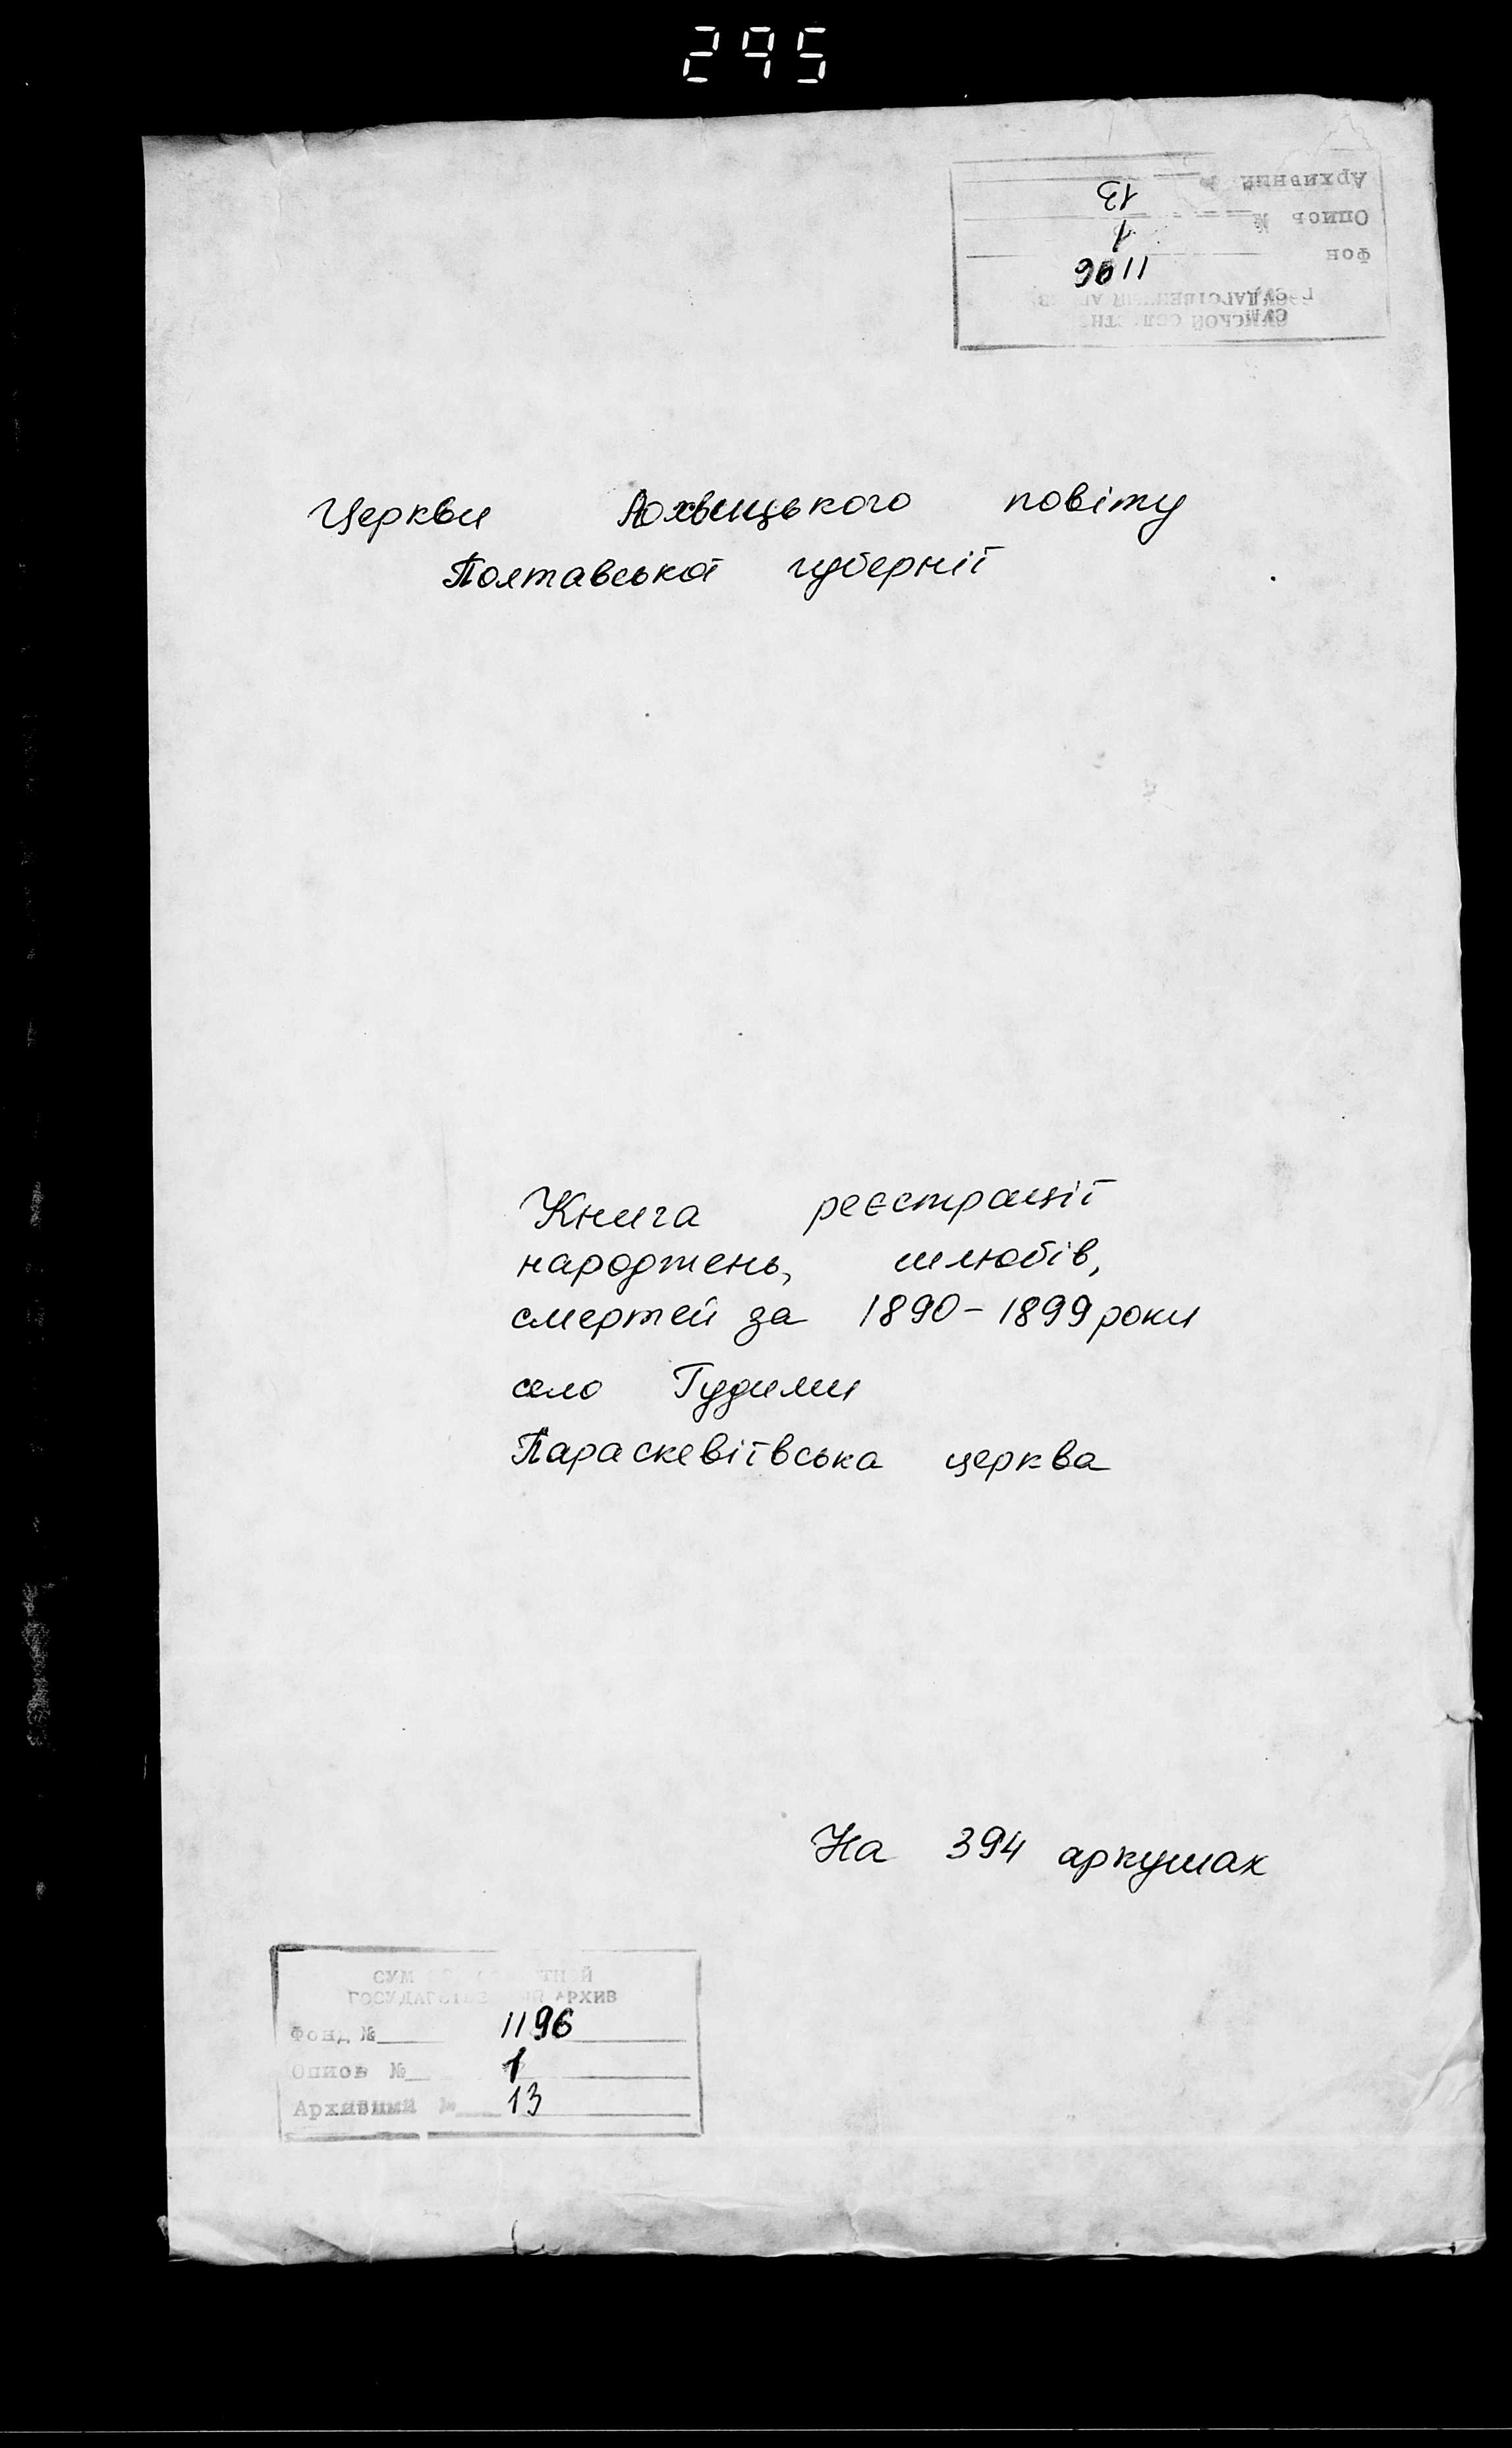 295
Архивный №
13
Опись №
1
Фон
1196
ГОСУДАРСТВЕННЫЙ АРХИВ
СУМСКОЙ ОБЛАСТНОЙ
Церкви Лохвицького повіту
Полтавської губернії
Книга реєстрації
народжень, шлюбів,
смертей за 1890-1899 роки
село Гудими
Параскевіївська церква
На 394 аркушах
СУМСКОЙ ОБЛАСТНОЙ
ГОСУДАРСТВЕННЫЙ АРХИВ
Фонд № 1196
Опись № 1
Архивный № 13